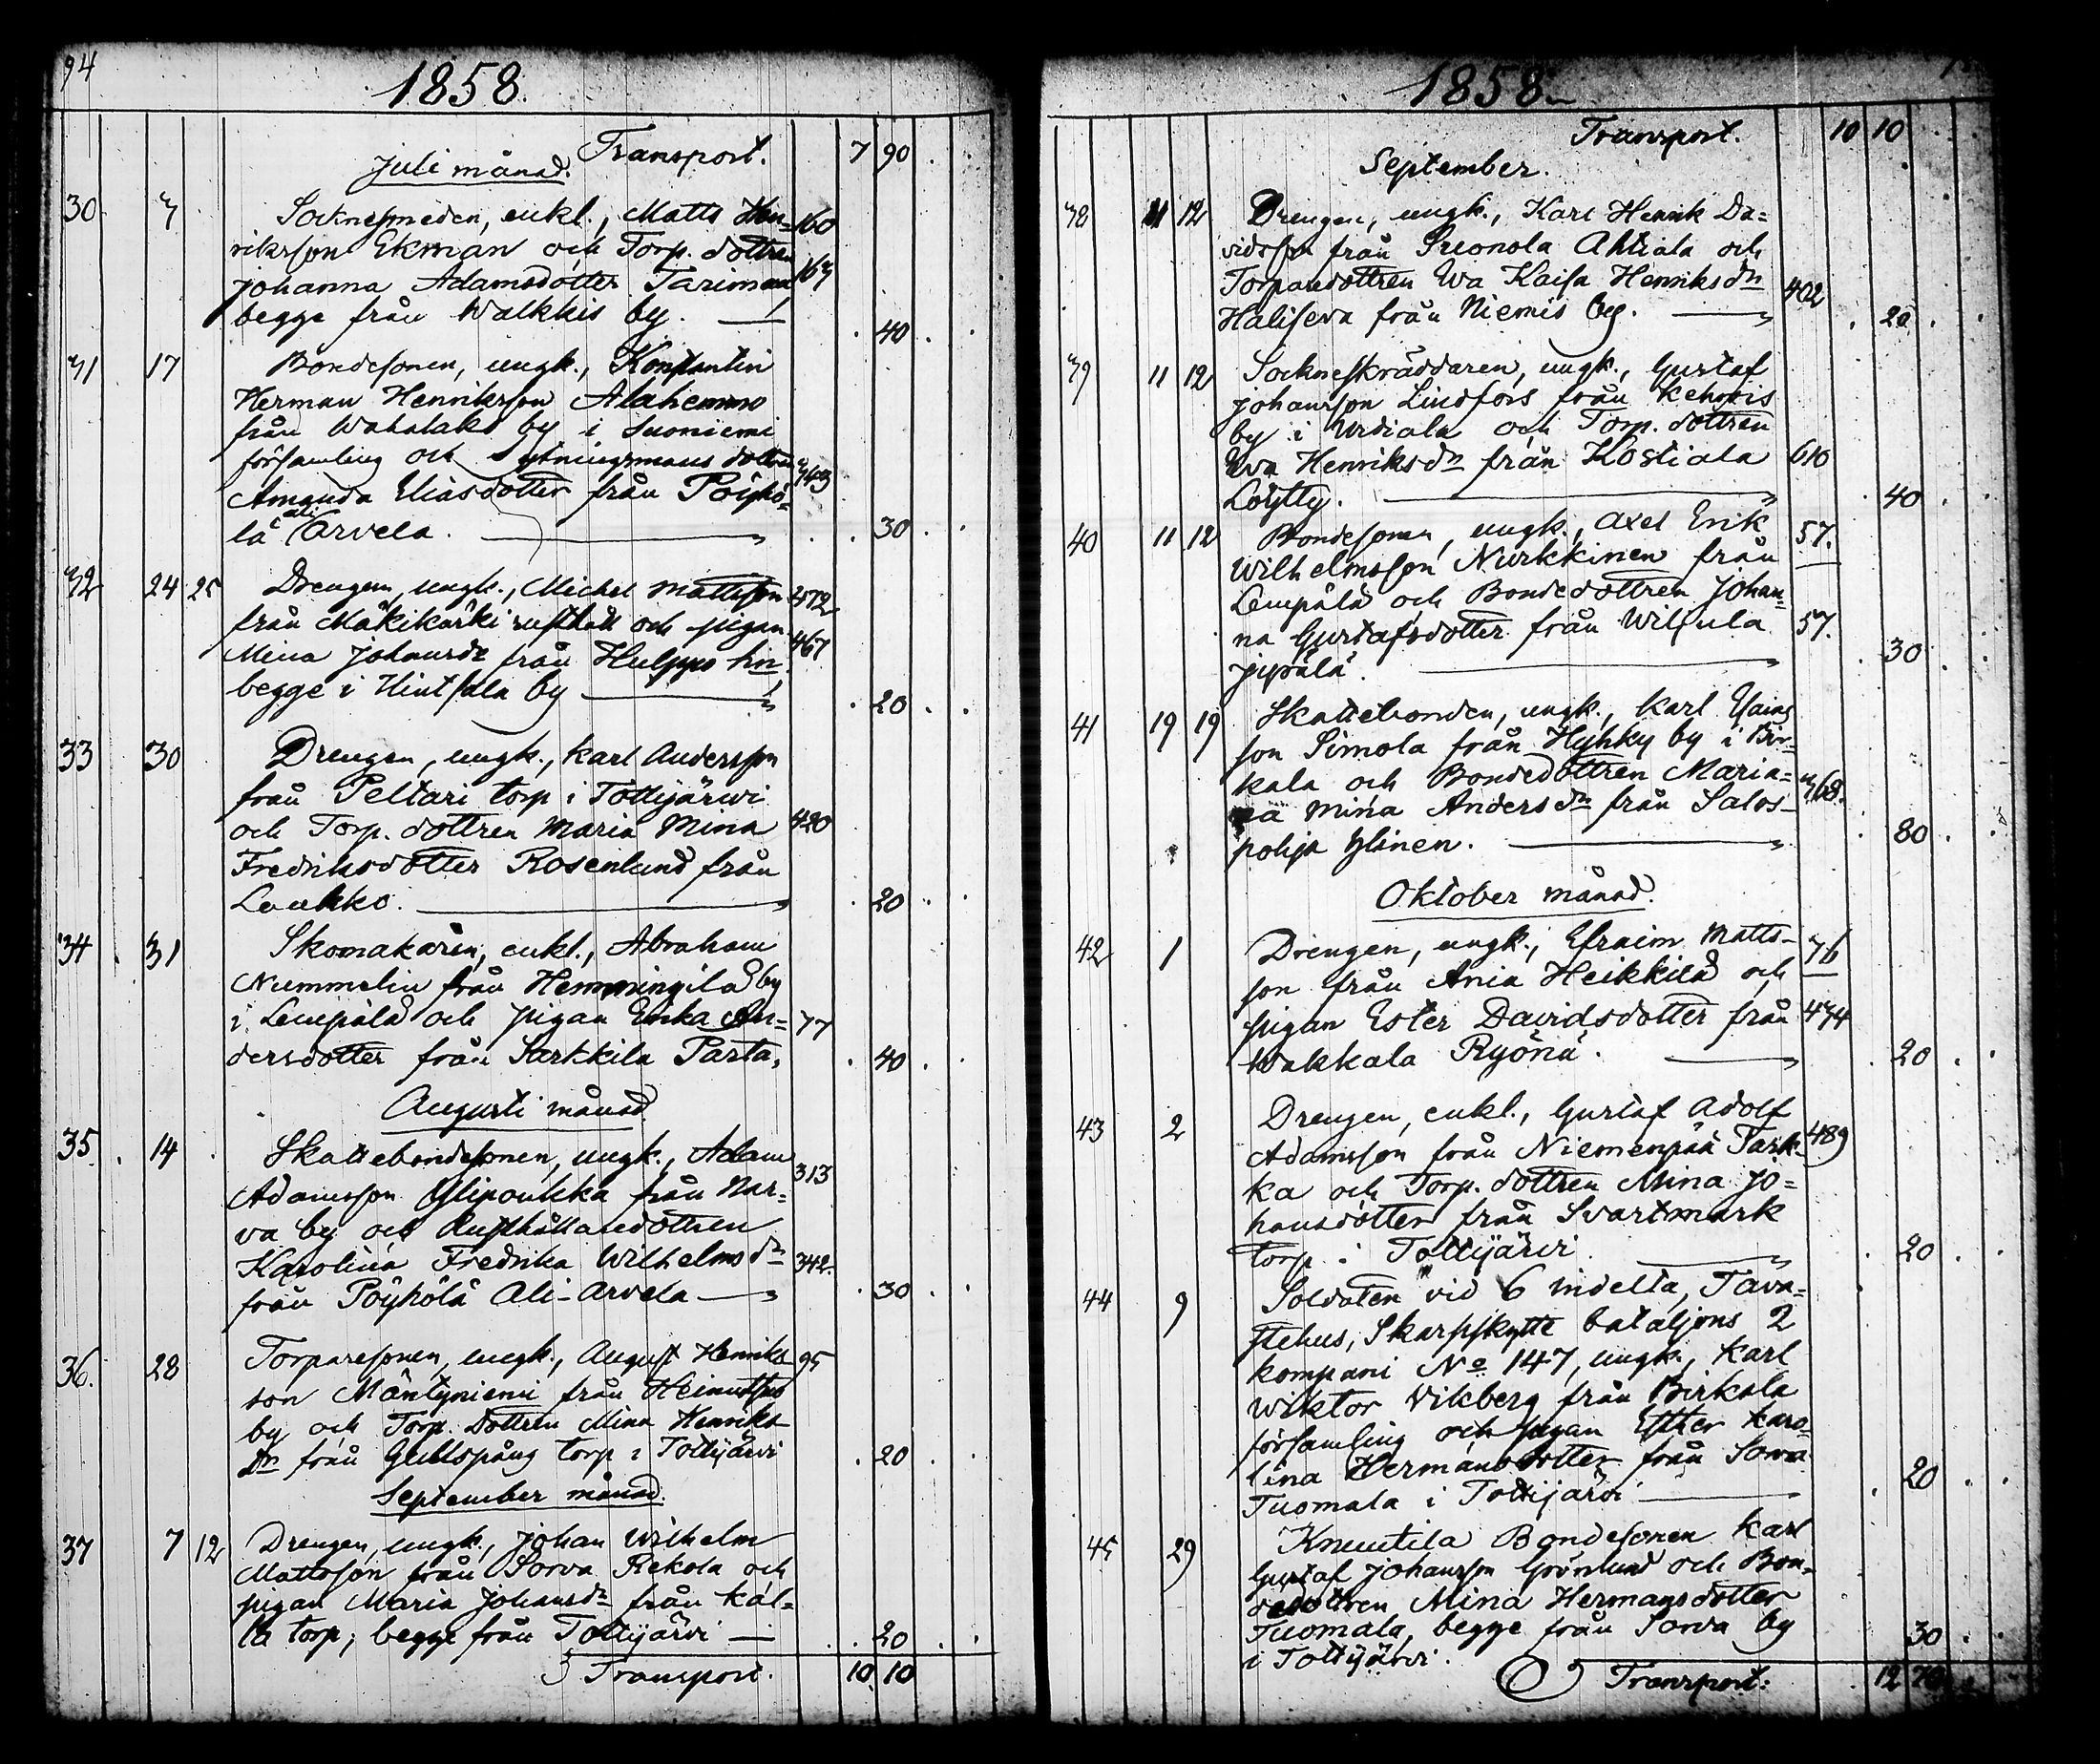 94
1858.
Transport. 7 90
Juli månad.
30 7 Socknesmeden, enkl., Matts Hen= 160
riksson Ekman och Torp. dottren
Johanna Adamsdotter Tariman 167
begge från Walkkis by. 40
31 17 Bondesonen, ungk., Konstantin
Herman Henriksson Alahemmo
från Wahalaks by i Suoniemi
församling och Sytningsmans dottren 343
Amanda Eliasdotter från Pöyhö=
lä ali Arvela. 30
32 24 25 Drengen, ungk., Michel Mattsson 472
från Mäkikärki rusthåll och pigan 467
Mina Johansdr från Hulppo hn
begge i Hintsala by 20
33 30 Drengen, ungk., Karl Andersson
från Peltari torp i Tottijärwi
och Torp. dottren Maria Mina 420
Fredriksdotter Rosenlund från
Laukko. 20
34 31 Skomakaren, enkl., Abraham
Nummelin från Hemmingilä by
i Lempälä och pigan Erika An= 77
dersdotter från Sarkkila Parta, 40
Augusti månad
35. 14 Skattebondesonen, ungk., Adam 313
Adamsson Ylipoukka från Nar=
va by och Rusthållaredottren
Karolina Fredrika Wilhelmsdr 342.
från Pöyhölä Ali-Arvela 30
36. 28 Torparesonen, ungk., August Henriks 95
son Mäntyniemi från Heinutsuo
by och Torp. dottren Mina Henriks
dr från Gullspång torp i Tottijärvi 20
September månad.
37 7 12 Drengen, ungk., Johan Wilhelm
Mattsson från Sorva Rekola och
pigan Maria Johansdr från Käl=
lä torp; begge från Tottijärvi 20
Transport. 10 10
1858
Transport. 10 10
September.
38 11 12 Drengen, ungk., Karl Henrik Da=
vidsson från Suonola Ahtiala och
Torparedottren Eva Kaisa Henriksdn 402
Haliseva från Niemis by. 20
39 11 12 Sockneskräddaren, ungk., Gustaf
Johansson Lindfors från Kehois
by i Urdiala och Torp. dottren
Eva Henriksdn från Kostiala 610
Löytty. 40
40 11 12 Bondesonen, ungk., Axel Erik 57.
Wilhelmsson Nurkkinen från
Lempälä och Bondedottren Johan=
na Gustafsdotter från Wilpula 57.
Jipälä. 30
41 19 19 Skattebonden, ungk., Karl
son Simola från Hyhky by i Bir=
kala och Bondedottren Maria= 368.
na Mina Andersdn från Salos-
pohja Ylinen. 80
Oktober månad.
42 1 Drengen, ungk., Efraim Matts- 76
son från Ania Heikkilä och
pigan Ester Davidsdotter från 474
Wakkala Ryönä. 20
43 2 Drengen, enkl., Gustaf Adolf
Adamsson från Niemenpää Park= 489
ka och Torp. dottren Mina Jo=
hansdotter från Svartmark
torp i Tottijärvi 20
44 9 Soldaten vid 6 indelta, Tava=
stehus, Skarpskytte bataljons 2
kompani No 147, ungk., Karl
Wiktor Vikberg från Birkala
församling och pigan Esther Karo=
lina Hermansdotter från Sorva
Tuomala i Tottijärvi 20
45 29 Knuutila Bondesonen Karl
Gustaf Johansson Grönlund och Bon=
dedottren Mina Hermansdotter
Tuomala, begge från Sorva by
i Tottijärvi. 30
Transport: 12 70